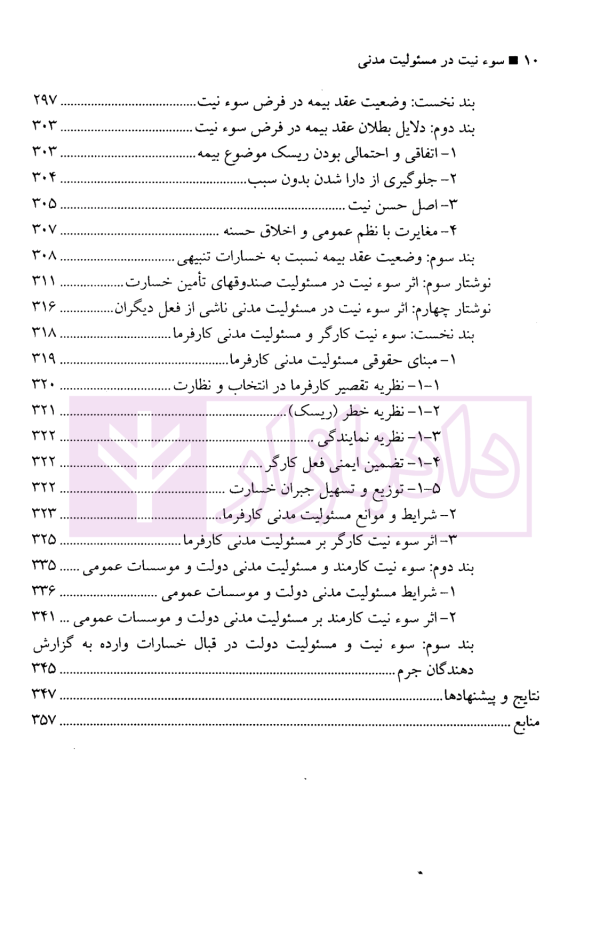 ۱۰ ■ سوء نیت در مسئولیت مدنی
بند نخست: وضعیت عقد بیمه در فرض سوء نیت ........ ۲۹۷
بند دوم: دلایل بطلان عقد بیمه در فرض سوء نیت ........ ۳۰۳
۱- اتفاقی و احتمالی بودن ریسک موضوع بیمه ........ ۳۰۳
۲- جلوگیری از دارا شدن بدون سبب ........ ۳۰۴
۳- اصل حسن نیت ........ ۳۰۵
۴- مغایرت با نظم عمومی و اخلاق حسنه ........ ۳۰۷
بند سوم: وضعیت عقد بیمه نسبت به خسارات تنبیهی ........ ۳۰۸
نوشتار سوم: اثر سوء نیت در مسئولیت صندوقهای تأمین خسارت ........ ۳۱۱
نوشتار چهارم: اثر سوء نیت در مسئولیت مدنی ناشی از فعل دیگران ........ ۳۱۶
بند نخست: سوء نیت کارگر و مسئولیت مدنی کارفرما ........ ۳۱۸
۱- مبنای حقوقی مسئولیت مدنی کارفرما ........ ۳۱۹
۱-۱- نظریه تقصیر کارفرما در انتخاب و نظارت ........ ۳۲۰
۱-۲- نظریه خطر (ریسک) ........ ۳۲۱
۱-۳- نظریه نمایندگی ........ ۳۲۲
۱-۴- تضمین ایمنی فعل کارگر ........ ۳۲۲
۱-۵- توزیع و تسهیل جبران خسارت ........ ۳۲۲
۲- شرایط و موانع مسئولیت مدنی کارفرما ........ ۳۲۳
۳- اثر سوء نیت کارگر بر مسئولیت مدنی کارفرما ........ ۳۲۵
بند دوم: سوء نیت کارمند و مسئولیت مدنی دولت و موسسات عمومی ...... ۳۳۵
۱- شرایط مسئولیت مدنی دولت و موسسات عمومی ........ ۳۳۶
۲- اثر سوء نیت کارمند بر مسئولیت مدنی دولت و موسسات عمومی ... ۳۴۱
بند سوم: سوء نیت و مسئولیت دولت در قبال خسارات وارده به گزارش
دهندگان جرم ........ ۳۴۵
نتایج و پیشنهادها ........ ۳۴۷
منابع ........ ۳۵۷
دادبازار